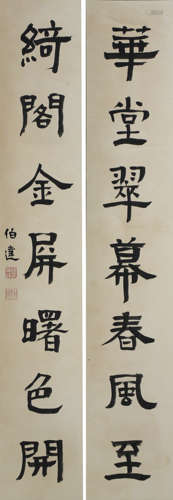 華堂翠幕春風至
綺閣金屏曙色開
伯達